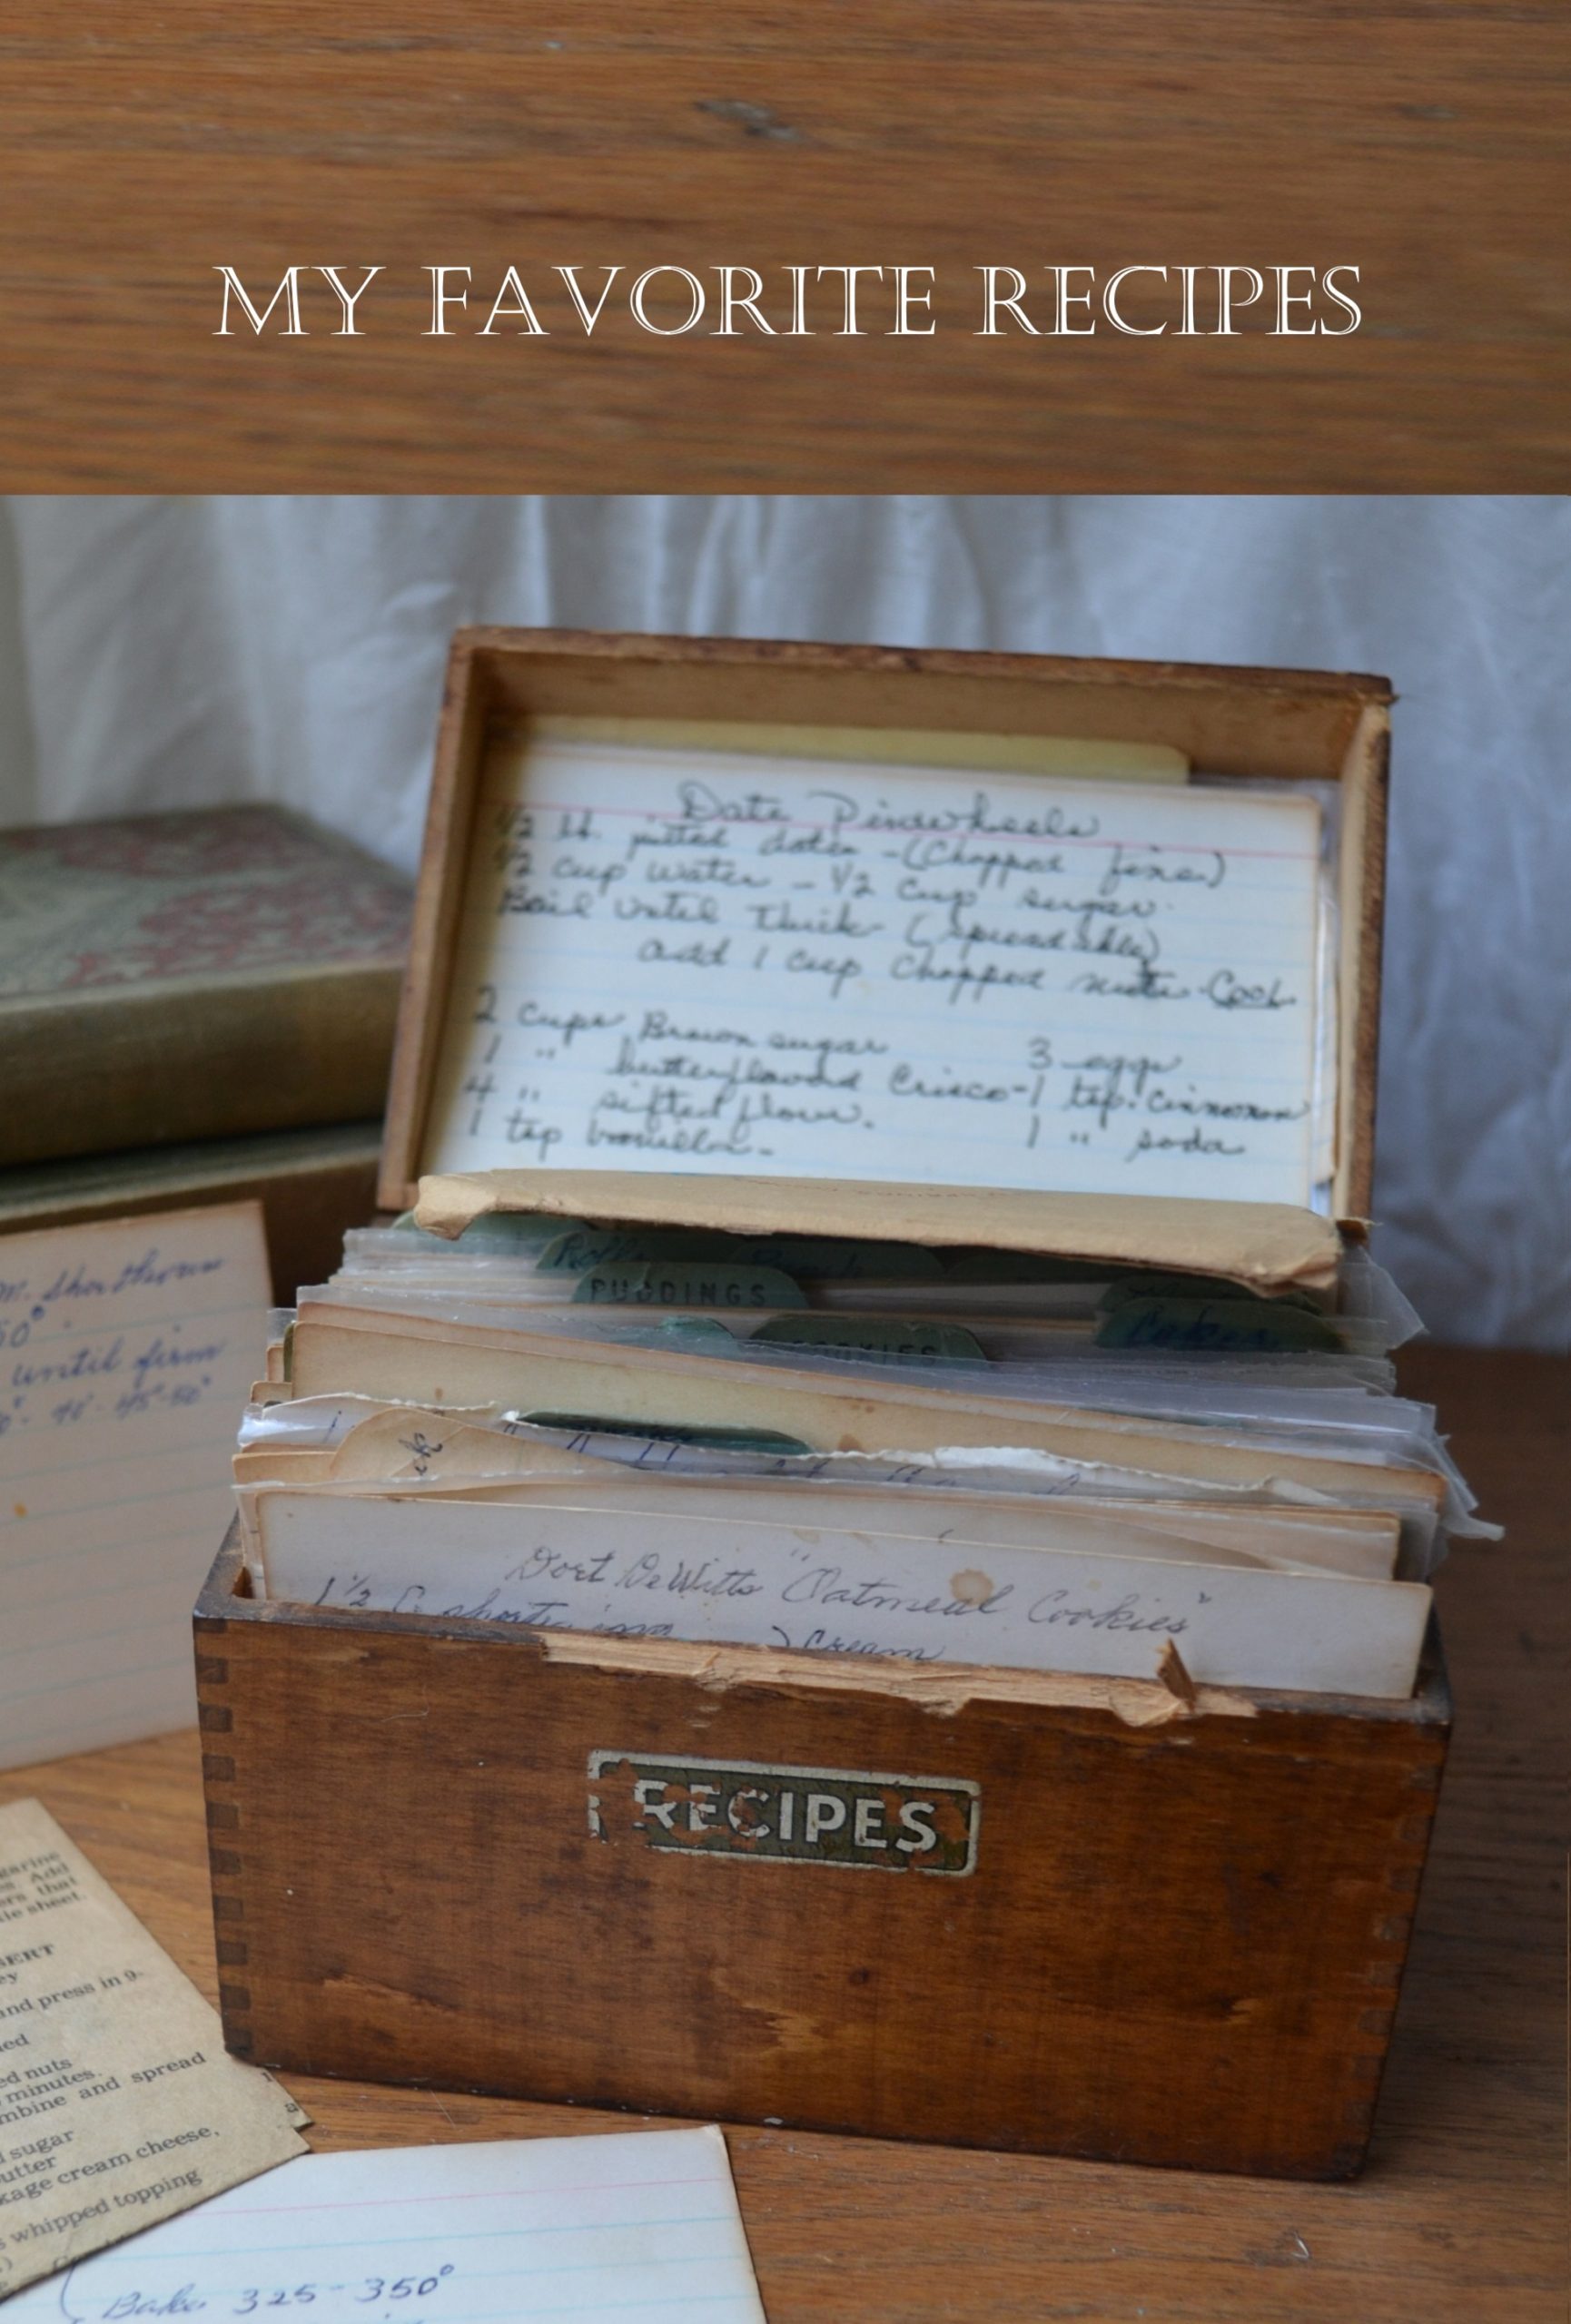 MY FAVORITE RECIPES
Date Pinwheels
1/2 lb. pitted dates - (Chopped fine)
1/2 cup water - 1/2 cup sugar
Boil until thick - (spreadable)
add 1 cup chopped nuts - Cool
2 cups Brown sugar 3 eggs
1 " butterflavored Crisco - 1 tsp. cinnamon
4 " sifted flour. 1 " soda
1 tsp vanilla -
Rolls
PUDDINGS
Cakes
COOKIES
Dort DeWitts "Oatmeal Cookies"
1 1/2 C shortening ) Cream
RECIPES
M. Shorthorn
50°
until firm
garine
Add
ers that
ie sheet.
SERT
ey
and press in 9-
ed
ed nuts
minutes.
mbine and spread
sugar
utter
kage cream cheese,
whipped topping
Bake 325 - 350°